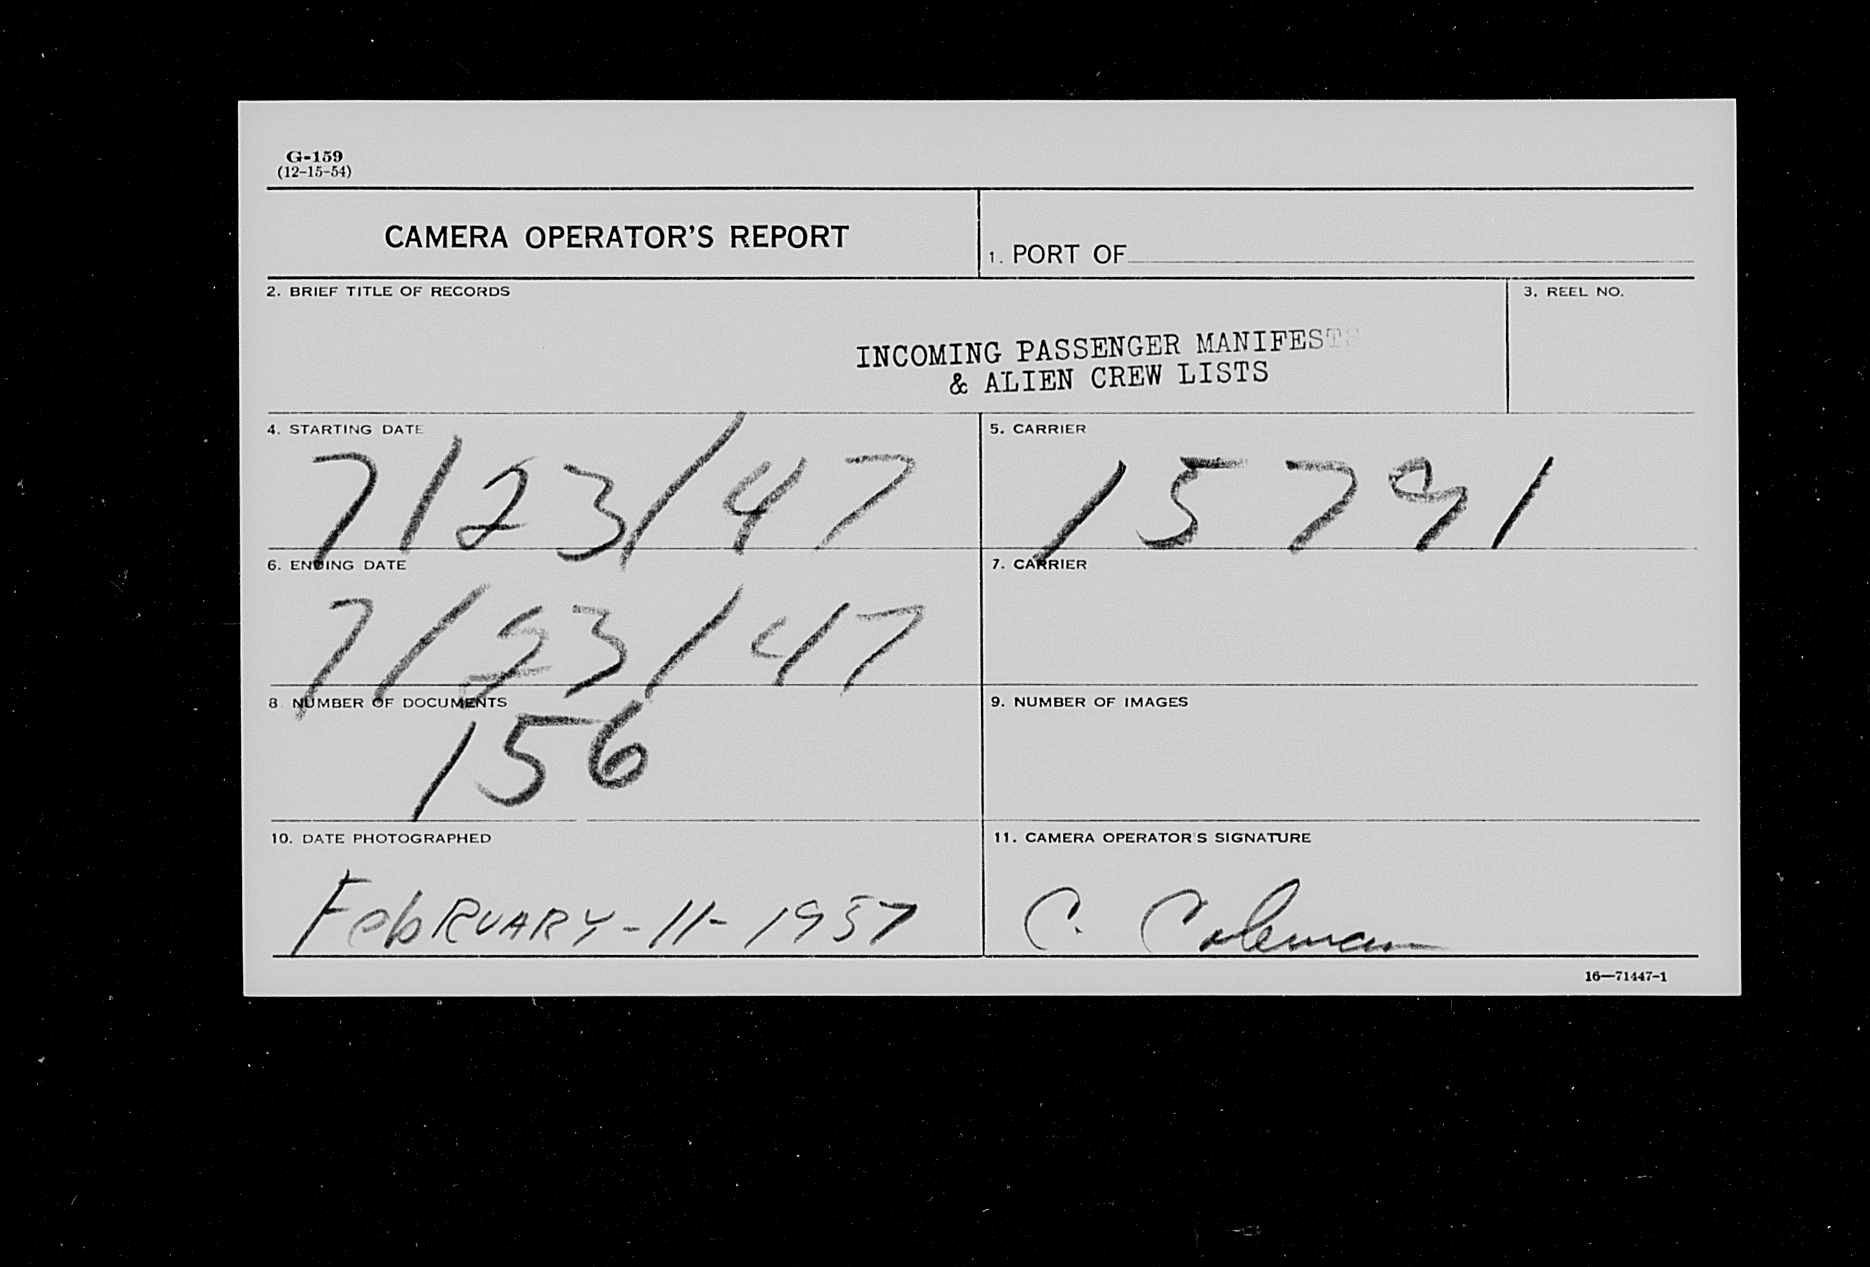 G-159
(12-15-54)
CAMERA OPERATOR'S REPORT
1. PORT OF
2. BRIEF TITLE OF RECORDS
3. REEL NO.
INCOMING PASSENGER MANIFESTS
& ALIEN CREW LISTS
4. STARTING DATE
7/23/47
5. CARRIER
15791
6. ENDING DATE
7/23/47
7. CARRIER
8. NUMBER OF DOCUMENTS
156
9. NUMBER OF IMAGES
10. DATE PHOTOGRAPHED
FebRUARY-11-1957
11. CAMERA OPERATOR'S SIGNATURE
C. Coleman
16—71447-1